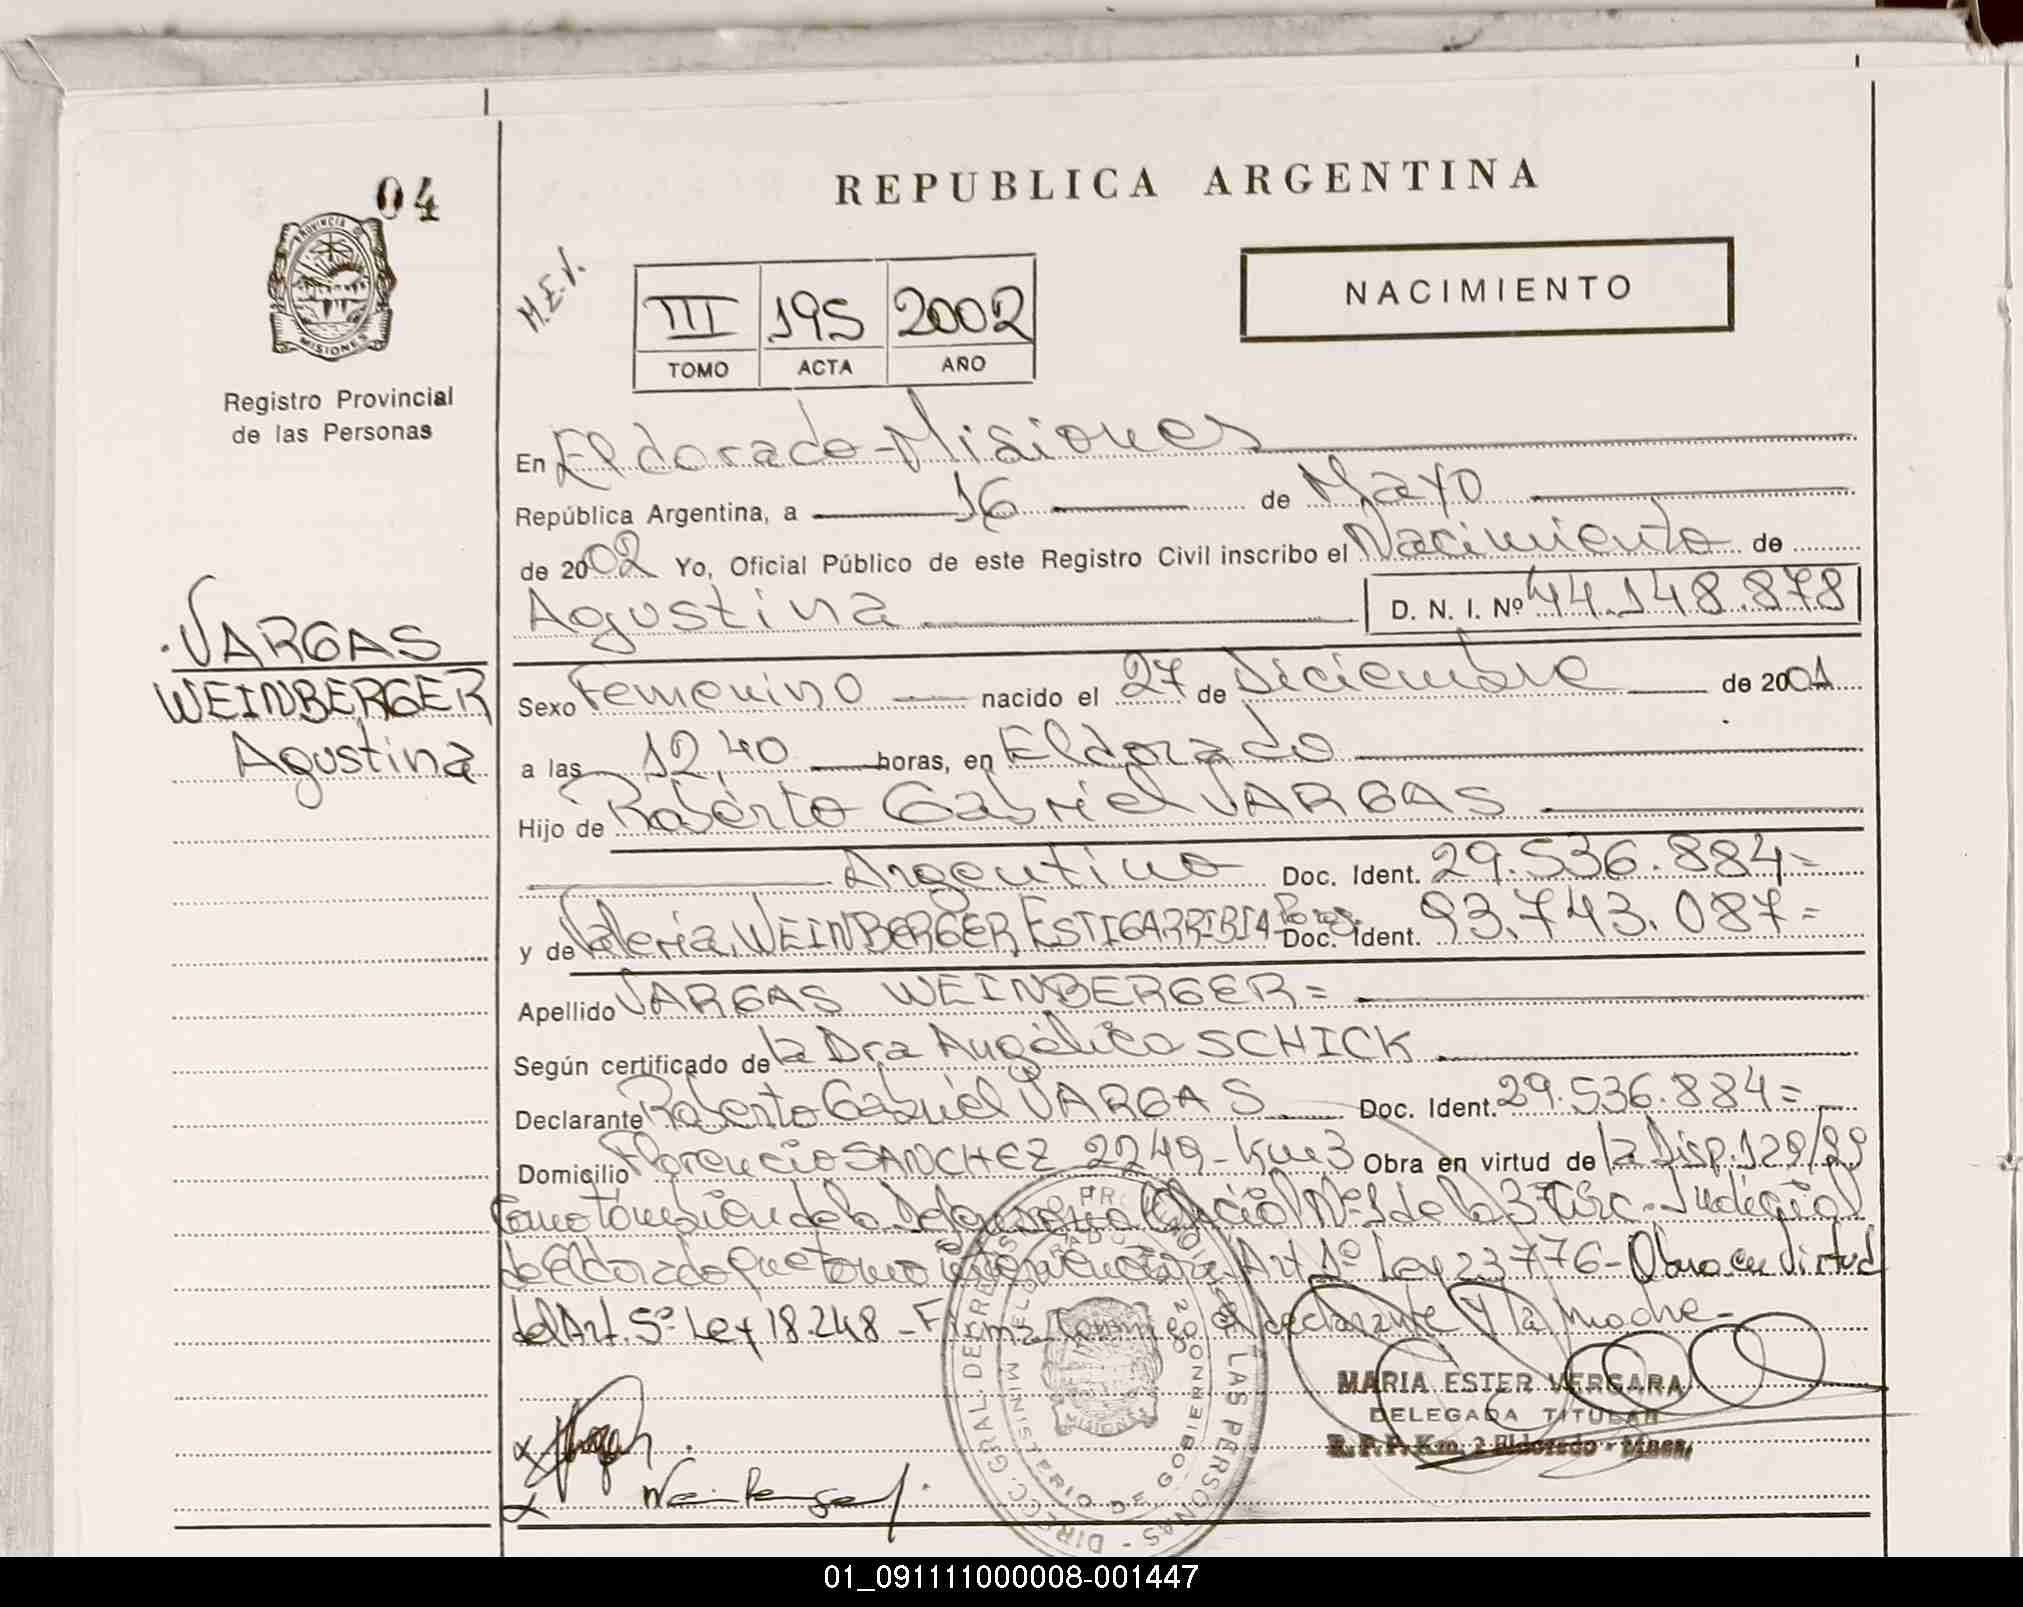 04
PROVINCIA DE
MISIONES
Registro Provincial
de las Personas
VARGAS
WEINBERGER
Agustina
REPUBLICA ARGENTINA
M.E.V.
III 195 2002
TOMO ACTA AÑO
NACIMIENTO
En Eldorado-Misiones
República Argentina, a 16 de Mayo
de 2002 Yo, Oficial Público de este Registro Civil inscribo el Nacimiento de
Agustina D. N. I. Nº 44.148.878
Sexo Femenino nacido el 27 de Diciembre de 2001
a las 12,40 horas, en Eldorado
Hijo de Roberto Gabriel VARGAS
Argentino Doc. Ident. 29.536.884=
y de Valeria WEINBERGER ESTIGARRIBIA- Doc. Ident. 93.743.087=
Apellido VARGAS WEINBERGER=
Según certificado de la Dra Angélica SCHICK
Declarante Roberto Gabriel VARGAS Doc. Ident. 29.536.884=
Domicilio Florencio SANCHEZ 2249-Km3 Obra en virtud de la Disp. 129/99
Como tambien de la Defensoria Oficial Nº1 de la 3º Circ. Judicial
de Eldorado que tomo intervencion Art 1º Ley 23776-Obra en virtud
del Art. 5º Ley 18.248 - Firma el declarante y la madre-
MARIA ESTER VERGARA
DELEGADA TITULAR
R. P. P. Km. 2 Eldorado - Mnes.
Weinberger
01_091111000008-001447